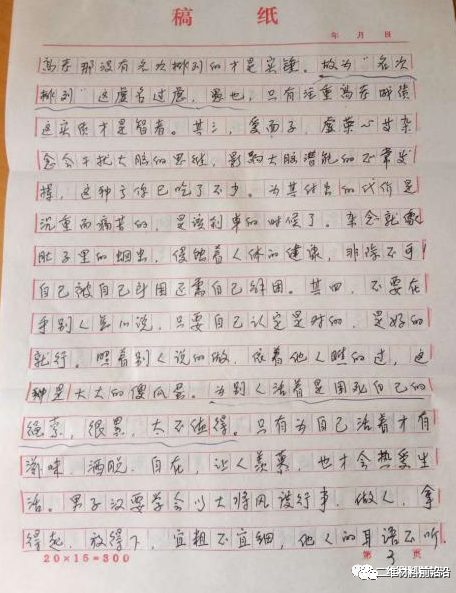 稿 纸
年 月 日
高考那没有名次排列的才是实锤。故为“名次
排列”这虚名过虑，累也，只有注重高考成绩
这实质才是智者。其三，爱面子，虚荣心等杂
念会干扰大脑的思维，影响大脑潜能的正常发
挥，这种亏你已吃了不少。为其付出的代价是
沉重而痛苦的，是该刹车的时候了。杂念就像
肚子里的蛔虫，侵蚀着人体的健康，非除不可！
自己被自己斗困还需自己解困。其四，不要在
乎别人怎么说，只要自己认定是对的，是好的
就行。照着别人说的做，依着他人瞧的过，这
种是大大的傻瓜蛋。为别人活着是困死自己的
绳索，很累，太不值得。只有为自己活着才有
滋味，洒脱，自在，让人羡慕，也才会热爱生
活。男子汉要学会以大将风度行事，做人，拿
得起，放得下，宜粗不宜细，他人的耳语不听，
20×15=300
第 3 页
二维材料前沿